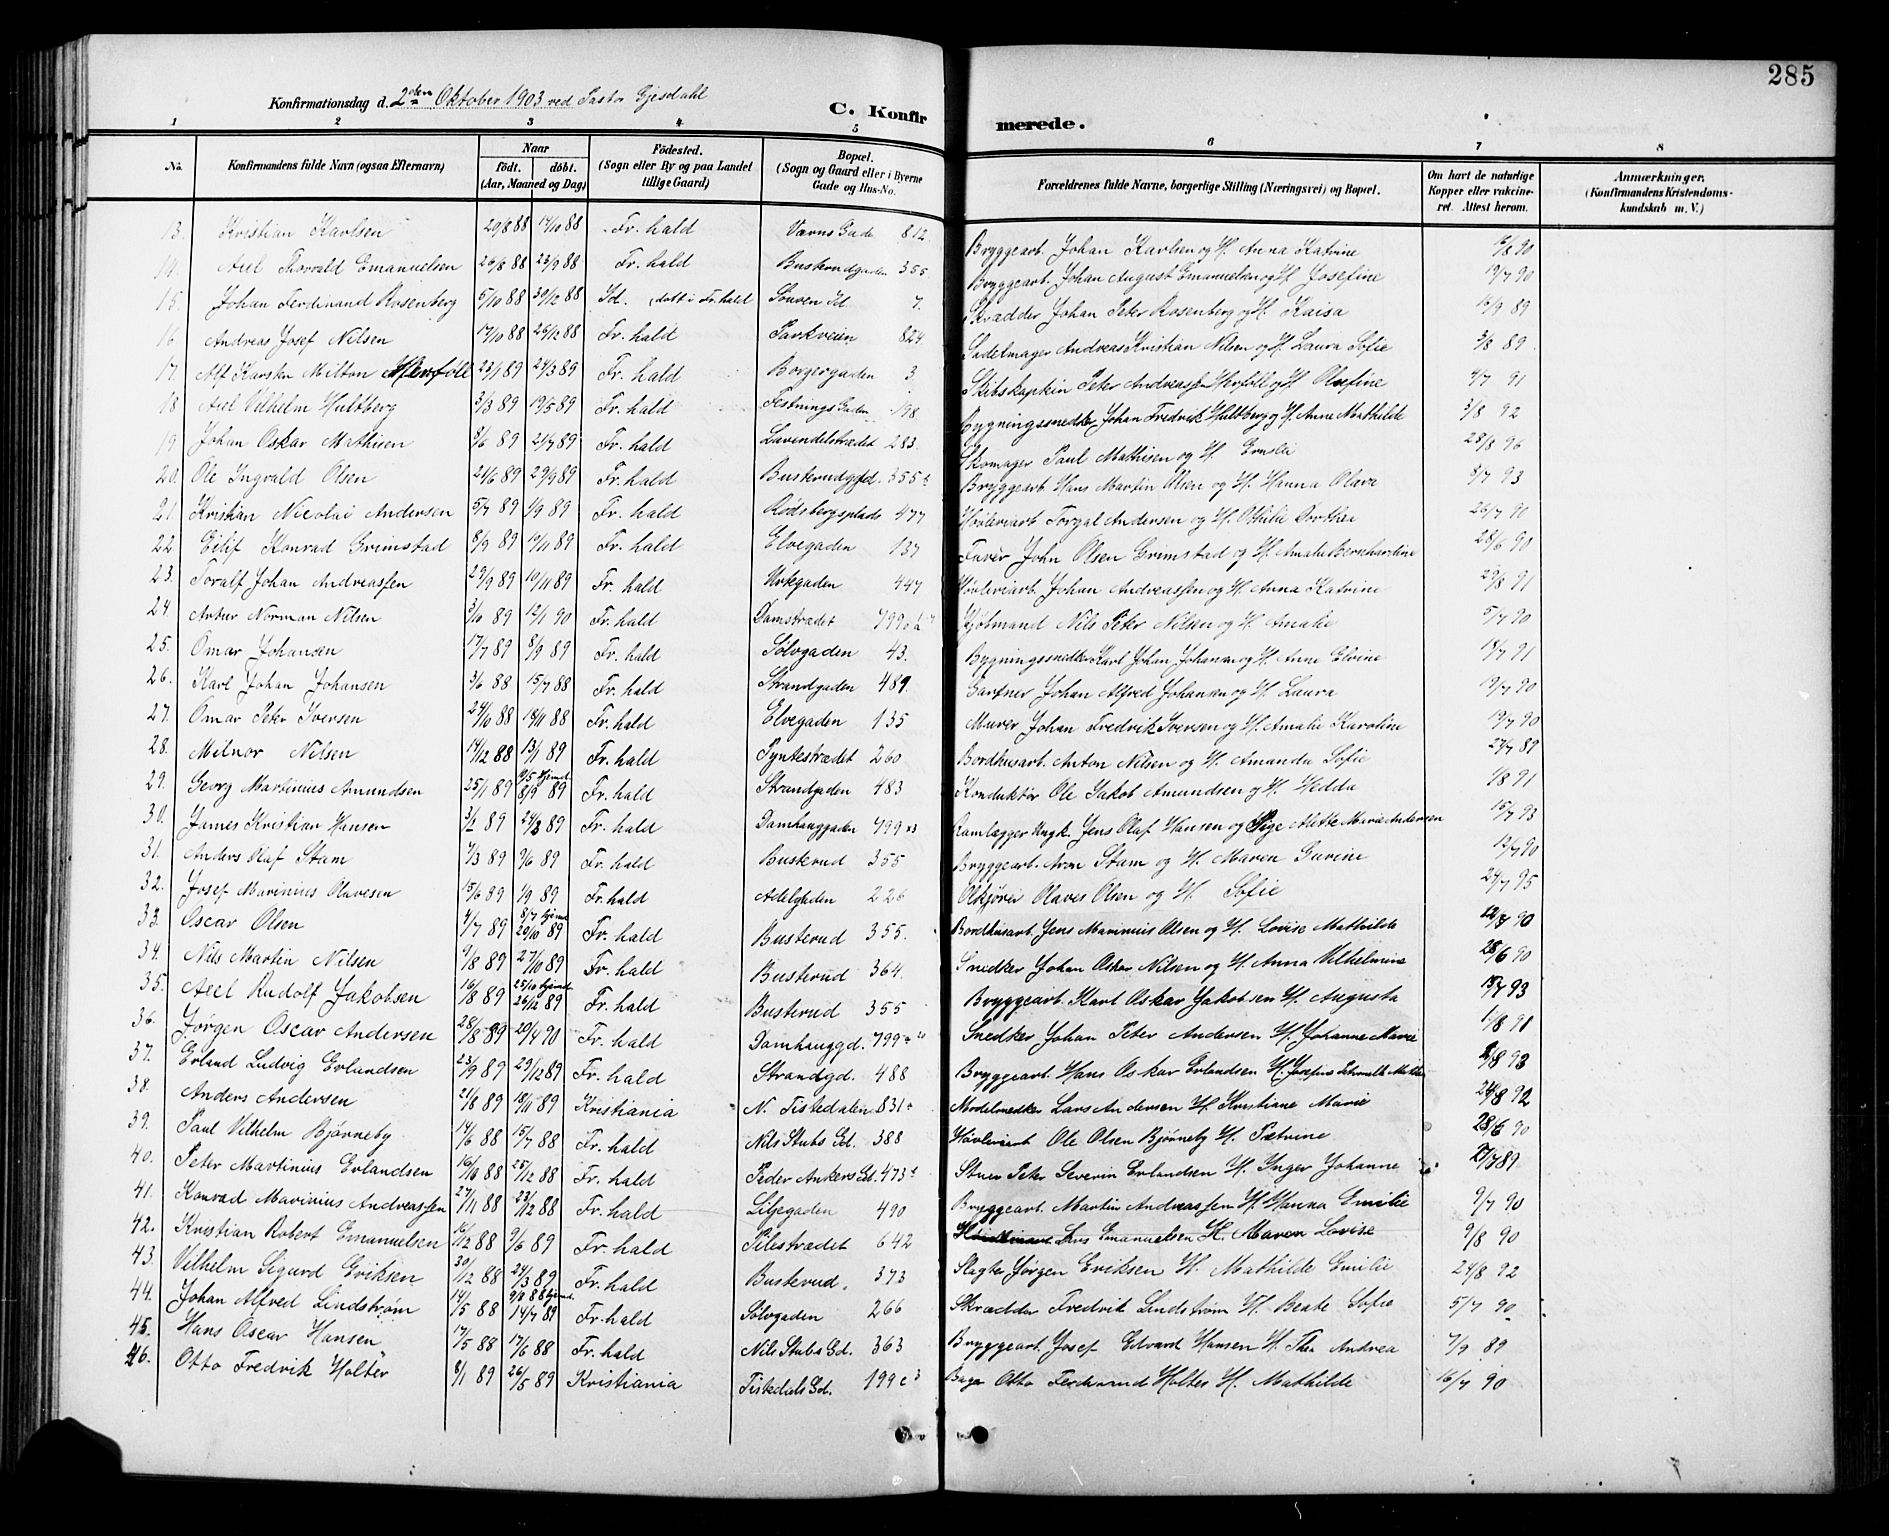 285
Konfirmationsdag d. 2den Oktober 1903 ved Pastor Gjesdahl
C. Konfir merede.
1 2 3 4 5 6 7 8
No. Konfirmandens fulde Navn (ogsaa Efternavn) Naar født. døbt. (Aar, Maaned og Dag) Födested. (Sogn eller By og paa Landet tillige Gaard) Bopæl. (Sogn og Gaard eller i Byerne Gade og Hus-No. Forældrenes fulde Navne, borgerlige Stilling (Næringsvei) og Bopæl. Om havt de naturlige Kopper eller vakcineret. Attest herom. Anmærkninger, (Konfirmandens Kristendomskundskab m. V.)
13. Kristian Karlsen 29/8 88 14/10 88 Fr. hald Værns Gade 812. Bryggearb. Johan Karlsen og H. Anna Katrine /8 90
14. Axel Thorvald Emanuelsen 26/8 88 23/9 88 Fr. hald Busterudgaden 355 Bryggearb. Johan August Emanuelsen og H. Josefine 19/7 90
15. Johan Ferdinand Rosenberg 5/10 88 30/12 88 Id. døbt i Fr. hald Id. 7. Skrædder Johan Peter Rosenberg og H. Kaisa 16/9 89
16 Andreas Josef Nilsen 17/10 88 26/12 88 Fr. hald Parkveien 824. Sadelmager Andreas Kristian Nilsen og H. Laura Sofie 3/8 89
17. Alf Karsten Milton Herföll 23/1 89 24/3 89 Fr. hald Borgergaden 3. Skibskaptein Peter Andreassen Herföll og H. Olefine 4/7 91
18 Axel Vilhelm Hultberg 3/3 89 19/5 89 Fr. hald Festnings Gaden 198. Bygningssnedker Johan Fredrik Hultberg og H. Anne Mathilde 3/8 92
19. Johan Oskar Mathisen 8/6 89 21/7 89 Fr. hald Lavendelstrædet 283. Skomager Paul Mathisen og H. 28/8 96
20. Ole Ingvald Olsen 21/6 89 29/9 89 Fr. hald Busterudgd. 355 Bryggearb. Hans Martin Olsen og H. Hanna Olava 8/7 93
21. Kristian Nicolai Andersen 5/7 89 1/9 89 Fr. hald Rödsbergsplads 477 Høvleriarb. Torgal Andersen og H. Othilie Dorthea 26/7 90
22 Eilif Konrad Grimstad 8/9 89 19/11 89 Fr. hald Elvegaden 137 Farver John Olsen Grimstad og H. Amalie Bernhardine 28/6 90
23. Toralf Johan Andreassen 29/9 89 10/11 89 Fr. hald Urtegaden 447 Høvleriarb. Johan Andreassen og H. Anna Katrine 29/8 91
24 Artur Norman Nilsen 3/10 89 12/1 90 Fr. hald Damstrædet 799 Hjölmand Nils Peter Nilsen og H. Amalie 5/7 90
25. Omar Johansen 17/7 89 8/9 89 Fr. hald Sölvgaden 43. Bygningssnedker Karl Johan Johansen og H. Anne Elvine 18/7 91
26. Karl Johan Johansen 3/6 88 15/7 88 Fr. hald Strandgaden 489. Gartner Johan Alfred Johansen og H. Laura 19/7 90
27. Omar Peter Iversen 24/10 88 18/11 88 Fr. hald Elvegaden 135 Murer Johan Fredrik Iversen og H. Amalie Karoline 19/7 90
28. Milnor Nilsen 14/12 88 13/1 89 Fr. hald Pyntestrædet 260 Bordhusarb. Anton Nilsen og H. Amanda Sofie 27/7 89
29. Georg Martinius Amundsen 25/1 89 9/5 hjemd. 8/9 89 Fr. hald Strandgaden 483 Konduktör Ole Jakob Amundsen og H. Hedda 1/8 91
30. James Kristian Hansen 3/2 89 24/3 89 Fr. hald Damhauggaden 799 Ramlægger Ungk. Jens Olaf Hansen og Pige Alette Marie Andersen 15/7 93
31. Anders Olaf Stam 7/3 89 9/6 89 Fr. hald Busterud 355 Bryggearb. Aron Stam og H. Maren Gurine 12/7 90
32. Josef Marinius Olavesen 15/6 89 1/9 89 Fr. hald Adelgaden 226 Ölkjörer Olaves Olsen og H. Sofie 24/7 95
33. Oscar Olsen 4/7 89 8/7 hjemd. 20/10 89 Fr. hald Busterud 355. Bordhusarb. Jens Marinius Olsen og H. Lovise Mathilde 12/7 90
34. Nils Martin Nilsen 9/8 89 27/10 89 Fr. hald Busterud 364. Snedker Johan Oskar Nilsen og H. Anna Vilhelmine 28/6 90
35. Axel Rudolf Jakobsen 16/8 89 25/10 hjemd. 26/12 89 Fr. hald Busterud 355 Bryggearb. Karl Oskar Jakobsen H. Augusta 15/7 93
36. Jørgen Oscar Andersen 28/8 89 20/4 90 Fr. hald Damhauggd. 799 Snedker Johan Peter Andersen H. Johanne Marie 1/8 91
37. Erland Ludvig Erlandsen 23/9 89 29/12 89 Fr. hald Strandgd. 488 Bryggearb. Hans Oskar Erlandsen H. Josefine /8 93
38. Anders Andersen 21/8 89 18/11 89 Kristiania N. Tistedalen 831 Modelsnedker Lars Andersen H. Kristiane Marie 24/8 92
39. Paul Vilhelm Bjørneby 14/6 88 15/7 88 Fr. hald Nils Stubs Gd. 388 Høvleriarb Ole Olsen Bjørneby H. Petrine 28/6 90
40. Peter Martinius Erlandsen 16/10 88 25/12 88 Fr. hald Peder Ankers Gd. 473 Stuer Peter Severin Erlandsen H. Inger Johanne 27/7 89
41. Konrad Marinius Andreassen 27/11 88 23/12 88 Fr. hald Liljegaden 490 Bryggearb. Martin Andreassen H. Hanna Emilie 9/7 90
42. Kristian Robert Emanuelsen 16/12 88 9/6 89 Fr. hald Pilestrædet 642 Lars Emanuelsen H. Maren Lovise 9/8 90
43. Vilhelm Sigurd Eriksen 30/12 88 24/3 89 Fr. hald Busterud. 373 Slagter Jörgen Eriksen H. Mathilde Emilie 24/8 92
44. Johan Alfred Lindstrøm 14/5 88 9/8 88 hjemd. 14/7 89 Fr. hald Sölvgaden 266 Skrædder Fredrik Lindstrøm H. Beate Sofie 5/7 90
45. Hans Oscar Hansen 17/5 88 17/6 88 Fr. hald Nils Stubs Gd. 363 Bryggearb. Josef Edvard Hansen H. Thea Andrea 7/9 89
46. Otto Fredrik Holter 8/1 89 26/5 89 Kristiania Tistedals Gd. 199 c Bager Otto Ferdinand Holter H. Mathilde 16/7 90